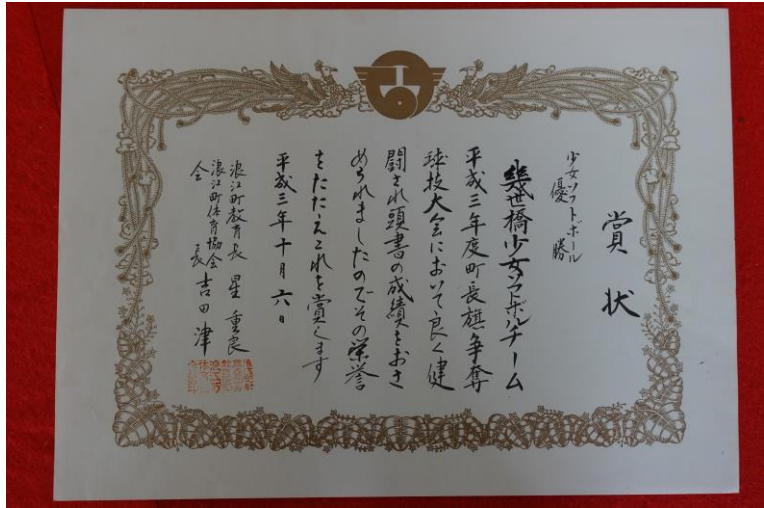 賞状
少女ソフトボール
優勝
幾世橋少女ソフトボールチーム
平成三年度町長旗争奪
球技大会において良く健
闘され頭書の成績をおさ
められましたのでその栄誉
をたたえこれを賞します
平成三年十月六日
浪江町教育長 星 重良
浪江町体育協会
会長 吉田 津